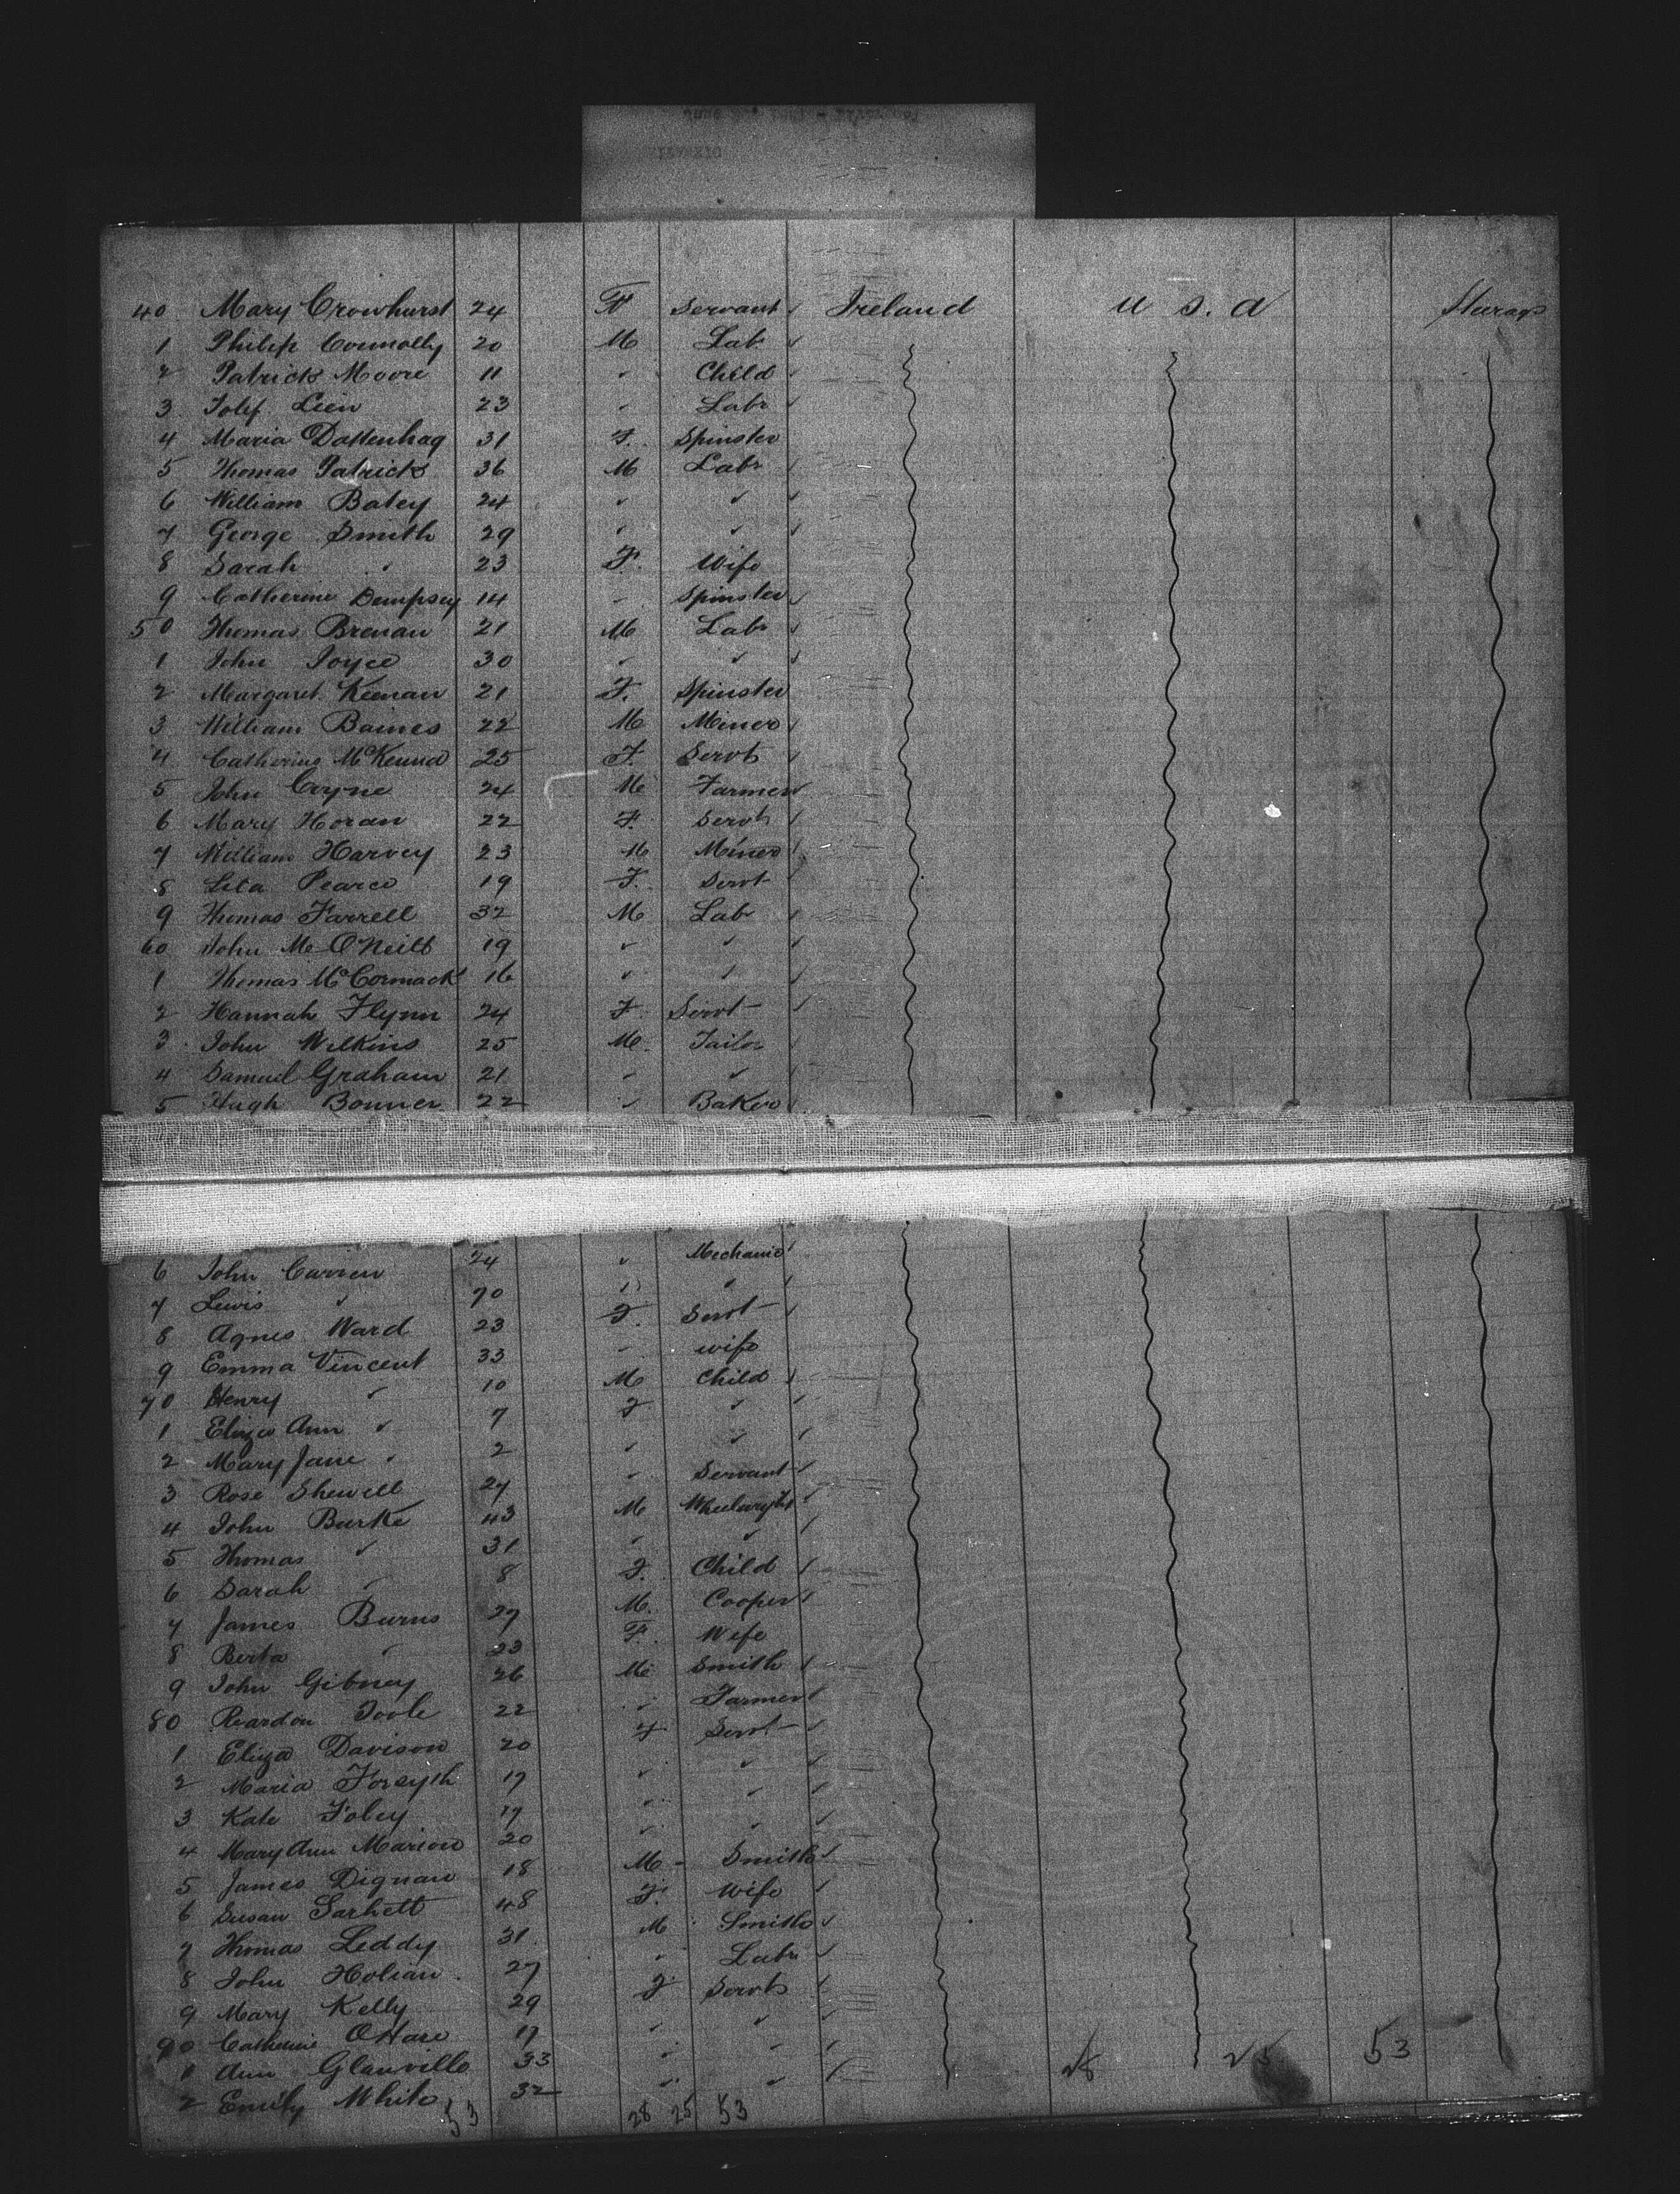 40 Mary Crowhurst 24 F Servant Ireland U S. A
1 Philip Connolly 20 M Labr
2 Patrick Moore 11 " Child
3 Lien 23 " Labr
4 Maria 31 F. Spinster
5 Thomas Patrick 36 M Labr
6 William Batey 24 " "
7 George Smith 29 " "
8 Sarah " 23 F. Wife
9 Catherine Dempsey 14 " Spinster
50 Thomas Brenan 21 M Labr
1 John Joyce 30 " "
2 Margaret Keenan 21 F. Spinster
3 William Baines 22 M Miner
4 Catherine McKenna 25 F. Servt
5 John Coyne 24 M Farmer
6 Mary Horan 22 F. Servt
7 William Harvey 23 M Miner
8 Pearce 19 F. Servt
9 Thomas Farrell 32 M Labr
60 John Mc O'Neill 19 " "
1 Thomas McCormack 16 " "
2 Hannah Flynn 24 F. Servt
3 John Wilkins 25 M. Tailor
4 Samuel Graham 21 " "
5 Hugh Bonner 22 " Baker
6 John 24 " Mechanic
7 Lewis " 70 " "
8 Agnes Ward 23 F. Servt
9 Emma Vincent 33 " wife
70 Henry " 10 M Child
1 Eliza Ann " 7 F "
2 Mary Jane " 2 " "
3 Rose Shewell 27 " Servant
4 John Burke 43 M
5 Thomas " 31 " "
6 Sarah " 8 F. Child
7 James Burns 27 M. Cooper
8 Berta " 23 F. Wife
9 John Gibney 26 M Smith
80 Reardon Toole 22 " Farmer
1 Eliza Davison 20 F Servt
2 Maria Forsyth 17 " "
3 Kate Foley 17 " "
4 Mary Ann Marion 20 " "
5 James Dignan 18 M Smith
6 Susan 48 F. Wife
7 Thomas Leddy 31 M Smith
8 John Holian 27 " Labr
9 Mary Kelly 29 F Servt
90 Catherine O'Hare 17 " "
1 Ann Glanville 33 " "
2 Emily White 32 " "
28 25 53
53 28 25 53